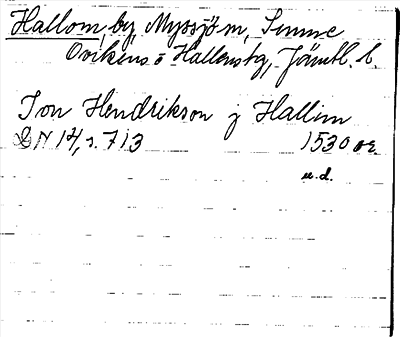 Hallom, by, Myssjö sn, Sunne
Ovikens o Hallens tg, Jämtl. l.
Ion Hendrikson j Hallim
DN 14, s. 713 1530 or
u.d.